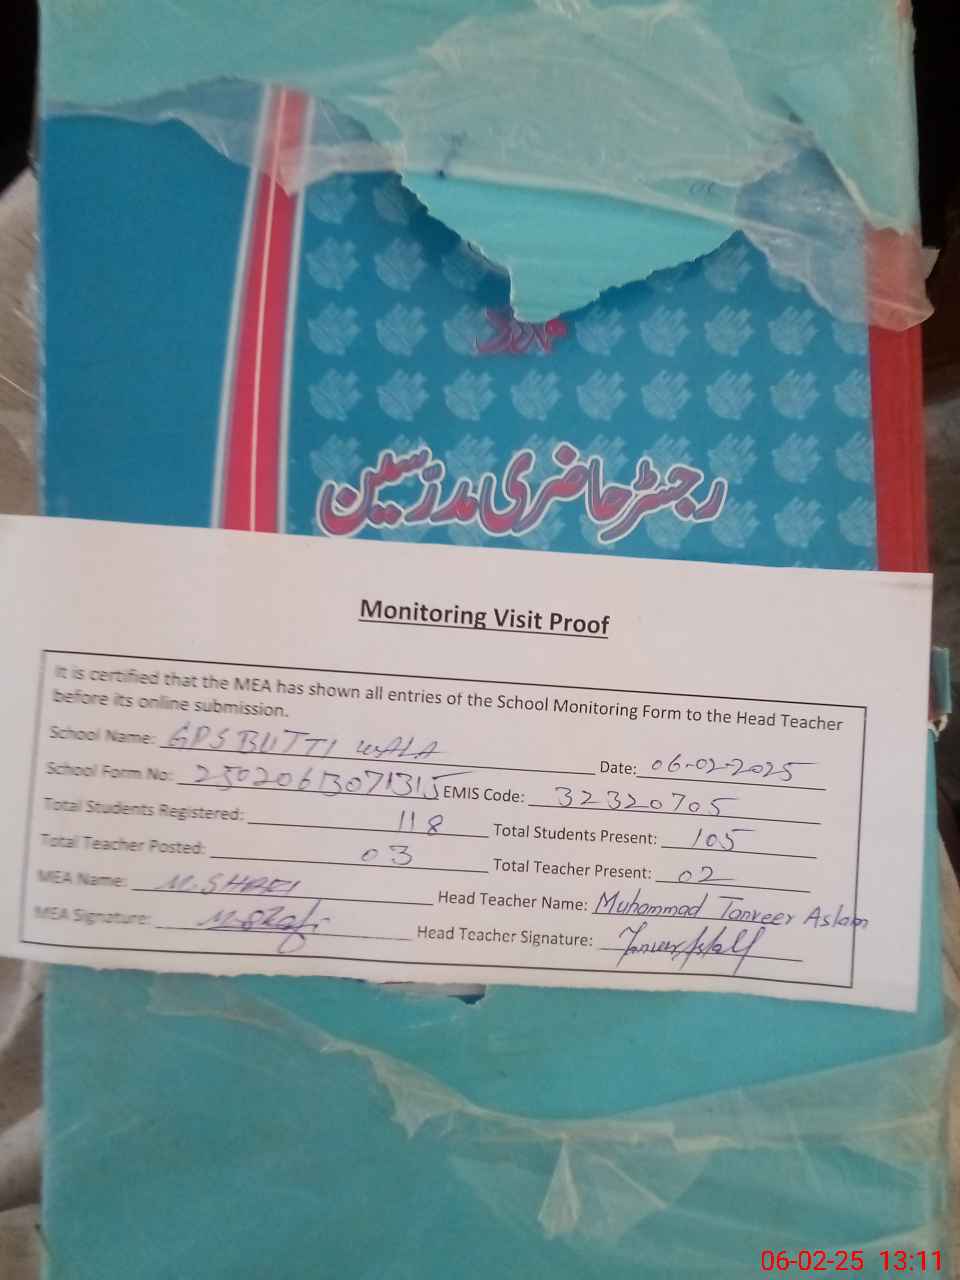 رجسٹر حاضری مدرّسین
Monitoring Visit Proof
It is certified that the MEA has shown all entries of the School Monitoring Form to the Head Teacher
before its online submission.
School Name: GPS BUTTI WALA Date: 06-02-2025
School Form No: 25020613071315 EMIS Code: 32320705
Total Students Registered: 118 Total Students Present: 105
Total Teacher Posted: 03 Total Teacher Present: 02
MEA Name: M. Head Teacher Name: Muhammad Tanveer Aslam
MEA Signature: Head Teacher Signature:
06-02-25 13:11